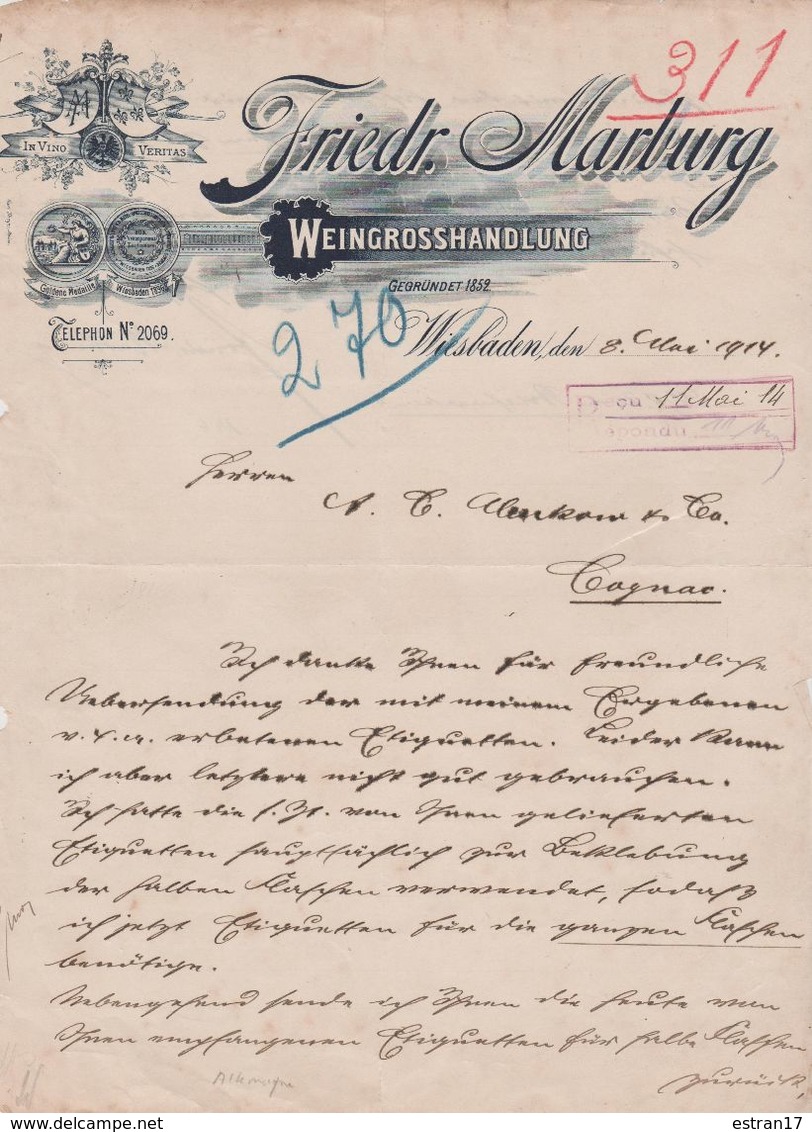 311
Friedr. Marburg
IN VINO VERITAS
WEINGROSSHANDLUNG
Goldene Medaille Wiesbaden
GEGRÜNDET 1852
TELEPHON Nº 2069.
270
Wiesbaden, den 8. Mai 1914.
Reçu 11 Mai 14
Répondu
Herren
A. C. & Co.
Cognac.
Ich danke Ihnen für freundliche
Uebersendung der mit meinem Ergebenen
v. 4. a. erbetenen Etiquetten. Leider kann
ich aber letztere nicht gut gebrauchen.
Ich hatte die s. Zt. von Ihnen gelieferten
Etiquetten hauptsächlich zur Beklebung
der halben Flaschen verwendet, sodass
ich jetzt Etiquetten für die ganzen Flaschen
benötige.
Nebengehend sende ich Ihnen die heute von
Ihnen empfangenen Etiquetten für halbe Flaschen
zurück,
Allemagne
estran17